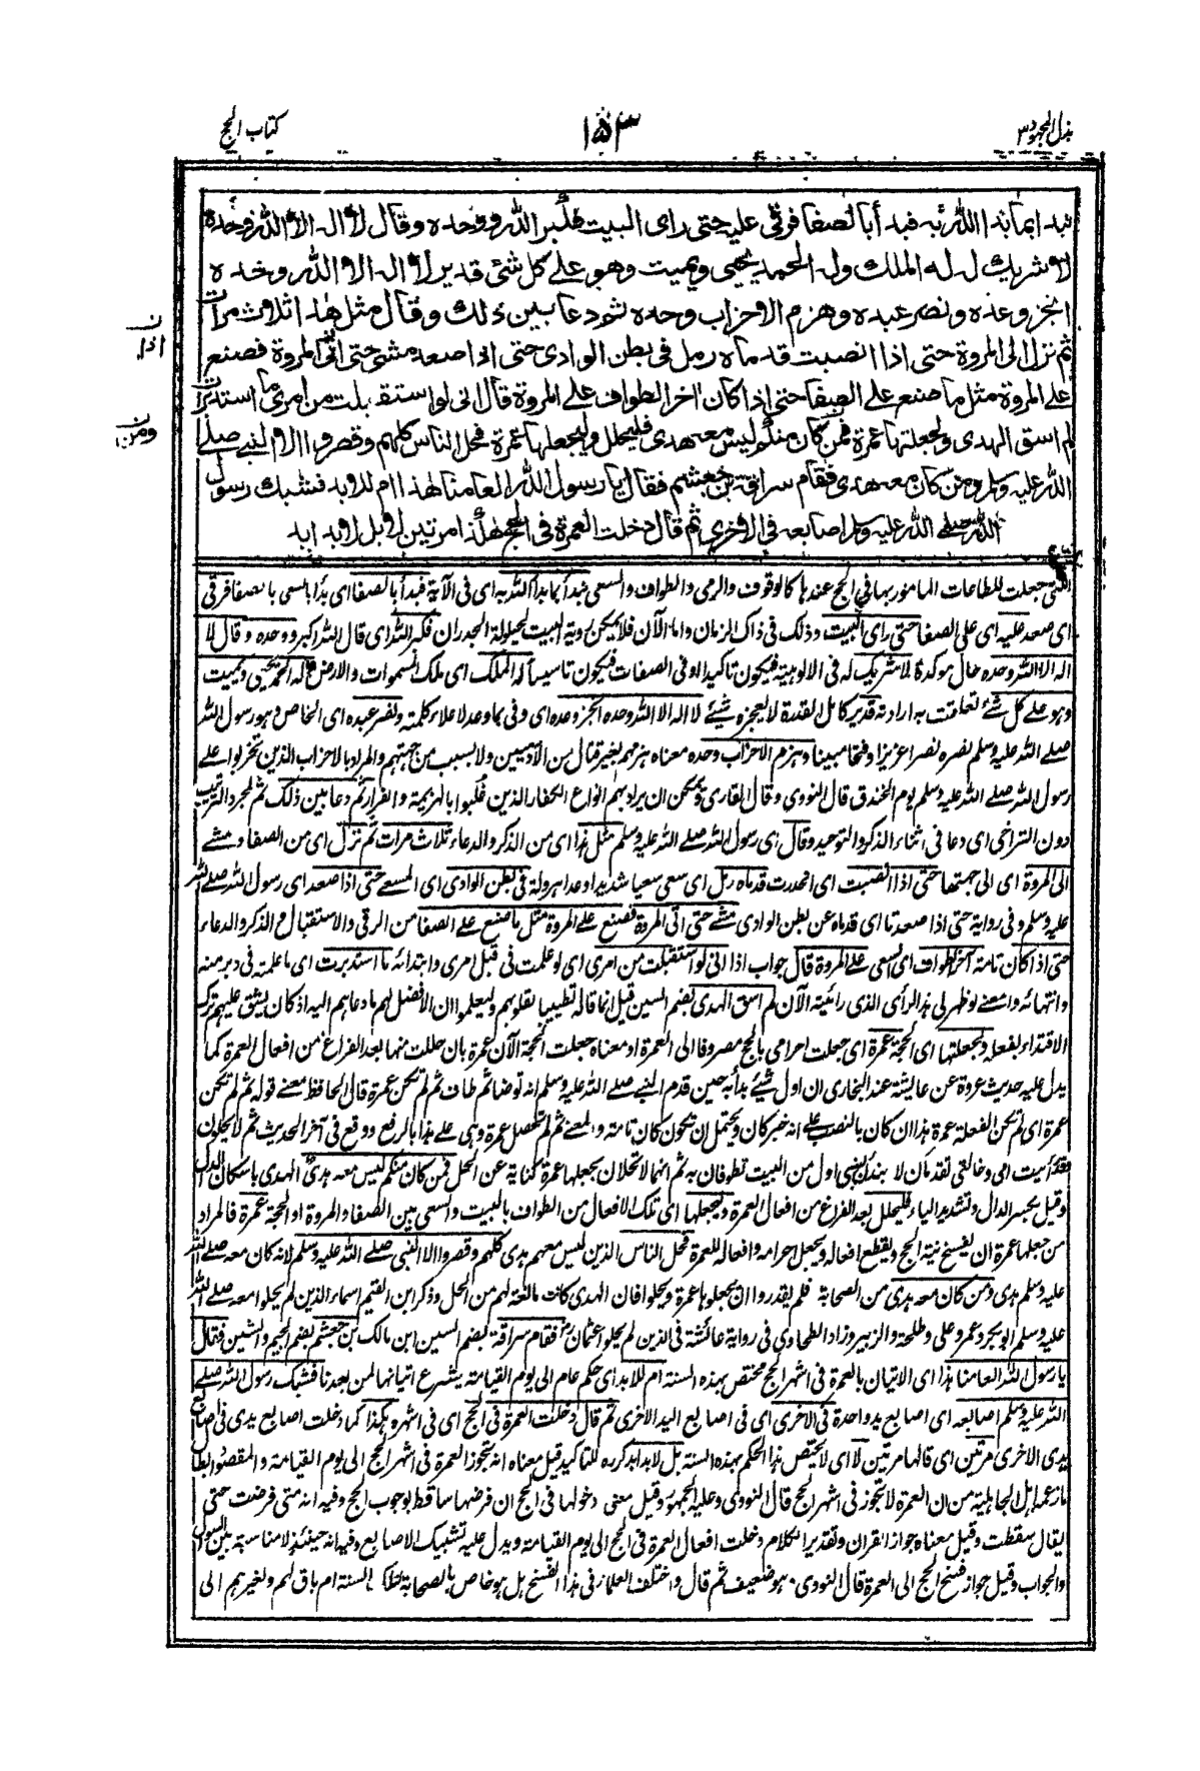 بذل المجهود ٣
١٥٣
كتاب الحج
نبدأ بما بدأ الله به فبدأ بالصفا فرقى عليه حتى رأى البيت فكبر الله ووحده وقال لا اله الا الله وحده
لا شريك له له الملك وله الحمد يحيى ويميت وهو على كل شئ قدير لا اله الا الله وحده
انجز وعده ونصر عبده وهزم الاحزاب وحده ثم دعا بين ذلك وقال مثل هذا ثلاث مرات
ثم نزل الى المروة حتى اذا انصبت قدماه رمل فى بطن الوادى حتى اذا صعد مشى حتى اتى المروة فصنع
على المروة مثل ما صنع على الصفا حتى اذا كان اخر الطواف على المروة قال انى لو استقبلت من امرى ما استدبرت
لم اسق الهدى ولجعلتها عمرة فمن كان منكم ليس معه هدى فليحلل وليجعلها عمرة فحل الناس كلهم وقصروا الا النبى صلى
الله عليه وسلم ومن كان معه هدى فقام سراقة بن جعشم فقال يا رسول الله العامنا هذا ام للابد فشبك رسول
الله صلى الله عليه وسلم اصابعه فى الاخرى ثم قال دخلت العمرة فى الحج هكذا مرتين لا بل لابد ابد
ن
اذا
ن
ومن
التى جعلت للطاعات المامور بها فى الحج عندها كالوقوف والرمى والطواف والسعى نبدأ بما بدأ الله به اى فى الآية فبدأ بالصفا اى بدأ بالسعى بالصفا فرقى
اى صعد عليه اى على الصفا حتى رأى البيت وذلك فى ذاك الزمان واما الآن فلا يمكن روية البيت لحيلولة الجدران فكبر الله اى قال الله اكبر ووحده وقال لا
اله الا الله وحده حال موكدة لا شريك له فى الالوهية فيكون تاكيدا او فى الصفات فيكون تاسيسا له الملك اى ملك السموات والارض وله الحمد يحيى ويميت
وهو على كل شئ تعلقت به ارادته قدير كامل القدرة لا يعجزه شيئ لا اله الا الله وحده انجز وعده اى وفى بما وعد لاعلاء كلمته ونصر عبده اى الخاص وهو رسول الله
صلى الله عليه وسلم نصره نصرا عزيزا وفتحا مبينا وهزم الاحزاب وحده معناه هزمهم بغير قتال من الآدميين ولا بسبب من جهتهم والمراد بالاحزاب الذين تحزبوا على
رسول الله صلى الله عليه وسلم يوم الخندق قال النووى وقال القارى ويمكن ان يراد بهم انواع الكفار الذين غلبوا بالهزيمة والفرار ثم دعا بين ذلك ثم لمجرد الترتيب
دون التراخى اى دعا فى اثناء الذكر والتوحيد وقال اى رسول الله صلى الله عليه وسلم مثل هذا اى من الذكر والدعاء ثلاث مرات ثم نزل اى من الصفا ومشى
الى المروة اى الى جهتها حتى اذا انصبت اى انحدرت قدماه رمل اى سعى سعيا شديدا وعدا هرولة فى بطن الوادى اى المسعى حتى اذا صعد اى رسول الله صلى الله
عليه وسلم وفى رواية حتى اذا صعدتا اى قدماه عن بطن الوادى مشى حتى اتى المروة فصنع على المروة مثل ما صنع على الصفا من الرقى والاستقبال والذكر والدعاء
حتى اذا كان تامة آخر الطواف اى السعى على المروة قال جواب اذا انى لو استقبلت من امرى اى لو علمت فى قبل امرى وابتدائه ما استدبرت اى ما علمته فى دبر منه
وانتهائه والمعنى لو ظهر لى هذا الرأى الذى رائيته الآن لم اسق الهدى بضم السين قيل انما قاله تطييبا لقلوبهم وليعلموا ان الافضل لهم ما دعاهم اليه اذ كان يشق عليهم ترك
الاقتداء بفعله ولجعلتها اى الحجة عمرة اى جعلت احرامى بالحج مصروفا الى العمرة او معناه جعلت الحجة الآن عمرة بان حللت منها بعد الفراغ من افعال العمرة كما
يدل عليه حديث عروة عن عائشة عند البخارى ان اول شيئ بدأ به حين قدم النبى صلى الله عليه وسلم انه توضا ثم طاف ثم لم تكن عمرة قال الحافظ معنى قوله ثم لم تكن
عمرة اى لم تكن الفعلة عمرة هذا ان كان بالنصب على انه خبر كان ويحتمل ان تكون كان تامة والمعنى ثم لم تحصل عمرة وهى على هذا بالرفع ووقع فى آخر الحديث ثم لا يحلون
وقد رأيت امى وخالتى تقدمان لا تبتدئان بشيئ اول من البيت تطوفان به ثم انهما لا تحلان يجعلها عمرة كناية عن الحل فمن كان منكم ليس معه هدى الهدى باسكان الدال
وقيل بكسر الدال وتشديد الياء فليحلل بعد الفراغ من افعال العمرة وليجعلها اى تلك الافعال من الطواف بالبيت والسعى بين الصفا والمروة او الحجة عمرة فالمراد
من جعلها عمرة ان يفسخ نية الحج ويقطع افعاله ويجعل احرامه وافعاله للعمرة فحل الناس الذين ليس معهم هدى كلهم وقصروا الا النبى صلى الله عليه وسلم لانه كان معه صلى الله
عليه وسلم هدى ومن كان معه هدى من الصحابة فلم يقدروا ان يجعلوها عمرة ويحلوا فان الهدى كانت مانعة لهم من الحل وذكر ابن القيم اسماء الذين لم يحلوا معه صلى الله
عليه وسلم ابوبكر وعمر وعلى وطلحة والزبير وزاد الطحاوى فى رواية عائشة فى الذين لم يحلوا عثمان فقام سراقة بضم السين ابن مالك بن جعشم بضم الجيم والشين فقال
يا رسول الله العامنا هذا اى الاتيان بالعمرة فى اشهر الحج مختص بهذه السنة ام للابد اى حكم عام الى يوم القيامة يشرع اتيانها لمن بعدنا فشبك رسول الله صلى
الله عليه وسلم اصابعه اى اصابع يد واحدة فى الاخرى اى فى اصابع اليد الاخرى ثم قال دخلت العمرة فى الحج اى فى اشهره هكذا كما دخلت اصابع يدى فى اصابع
يدى الاخرى مرتين اى قالها مرتين لا اى لا يختص هذا الحكم بهذه السنة بل لابد ابد كرره للتاكيد قيل معناه انه تجوز العمرة فى اشهر الحج الى يوم القيامة والمقصود ابطال
ما زعمه اهل الجاهلية من ان العمرة لا تجوز فى اشهر الحج قال النووى وعليه الجمهور وقيل معنى دخولها فى الحج ان فرضها ساقط بوجوب الحج وفيه انه متى فرضت حتى
يقال سقطت وقيل معناه جواز القران وتقدير الكلام دخلت افعال العمرة فى الحج الى يوم القيامة ويدل عليه تشبيك الاصابع وفيه انه حينئذ لا مناسبة بين السوال
والجواب وقيل جواز فسخ الحج الى العمرة قال النووى وهو ضعيف ثم قال واختلف العلماء فى هذا الفسخ هل هو خاص بالصحابة تلك السنة ام باق لهم ولغيرهم الى